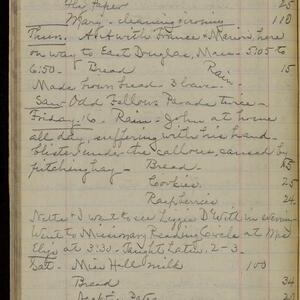 Fly Paper 25
Mary - cleaning & ironing 1 10
Thurs. A & A with France & Marion here
on way to East Douglas, Mass - 5.05 to
6:50 - Bread Rain - 15
Made brown bread - 3 loaves -
Saw Odd Fellows Parade twice -
Friday. 16 - Rain - John at home
all day, suffering with his hand -
blistered under the callous, caused by
pitching hay - Bread - 15
Cookies. 25
Raspberries 24.
Nettie & I went to see Lizzie DeWitt in evening
Went to Missionary Reading Circle at Mrs
Ely's at 3:30 - Taught Latin, 2-3.
Sat - Miss Hall milk 100
Bread 34